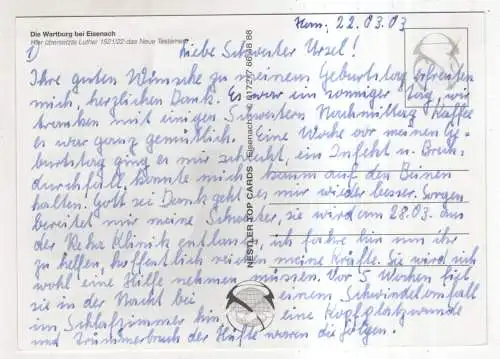 Die Wartburg bei Eisenach
Hier übersetzte Luther 1521/22 das Neue Testament
22.03.03
1)
Liebe Schwester Ursel!
Ihre guten Wünsche zu meinem Geburtstag erfreuten
mich, herzlichen Dank. Es war ein sonniger Tag, wir
tranken mit einigen Schwestern Nachmittag Kaffee
es war ganz gemütlich. Eine Woche vor meinen Ge-
burtstag ging es mir schlecht, ein Infekt u. Brech-
durchfall, konnte mich kaum auf den Beinen
halten. Gott sei Dank geht es mir wieder besser. Sorgen
bereitet mir meine Schwester, sie wird am 28.03. aus
der Reha Klinik entlassen, ich fahre hin um ihr
zu helfen, hoffentlich reichen meine Kräfte. Sie wird sich
wohl eine Hilfe nehmen müssen. Vor 5 Wochen fiel
sie in der Nacht bei einem Schwindelanfall
im Schlafzimmer hin, eine Kopfplatzwunde
und Trümmerbruch der Hüfte waren die Folgen.
NESTLER TOP CARDS
Eisenach